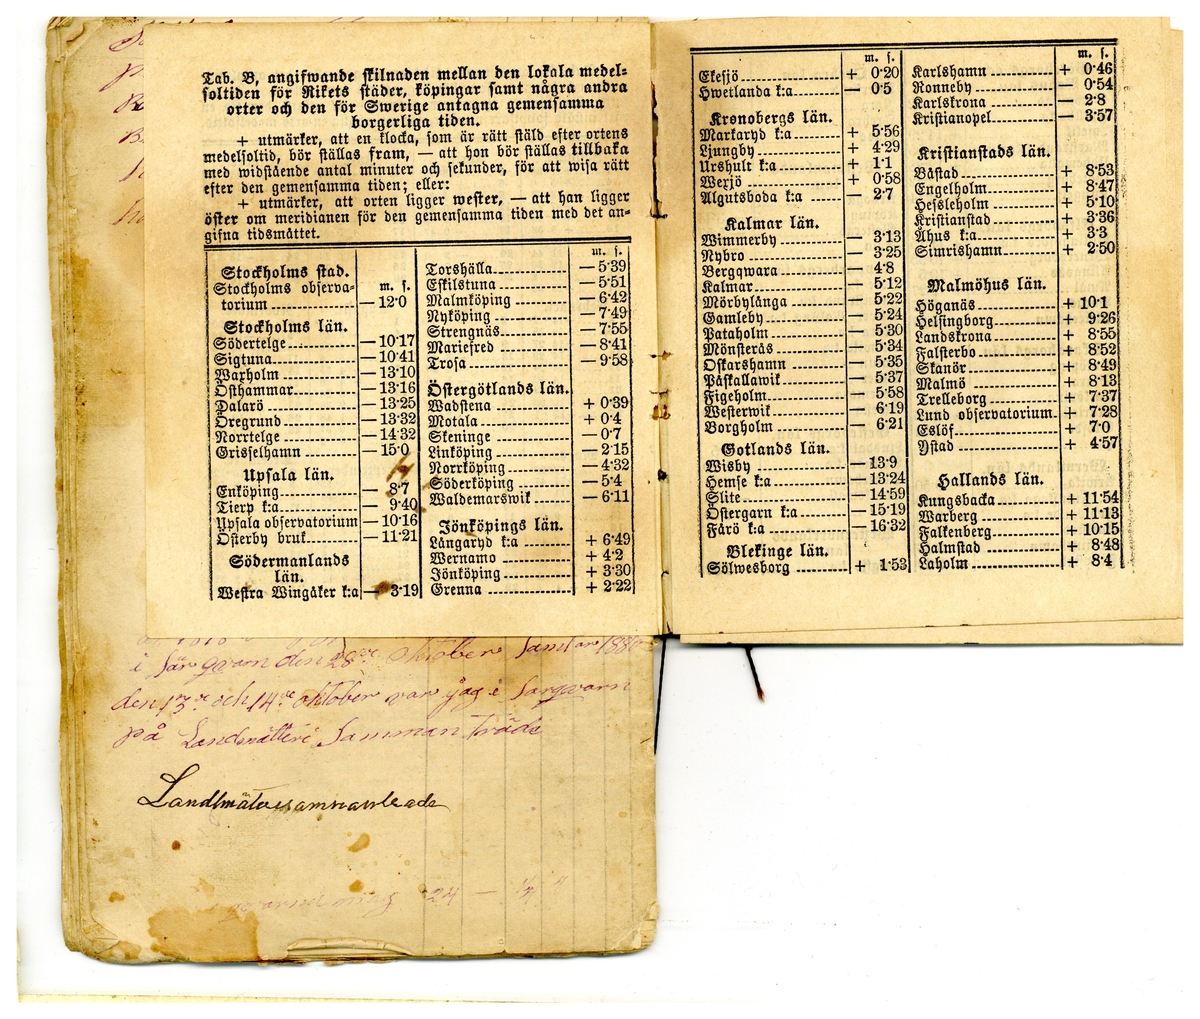 Tab. B, angifwande skilnaden mellan den lokala medel-
soltiden för Rikets städer, köpingar samt några andra
orter och den för Swerige antagna gemensamma
borgerliga tiden.
+ utmärker, att en klocka, som är rätt stäld efter ortens
medelsoltid, bör ställas fram, — att hon bör ställas tillbaka
med widstående antal minuter och sekunder, för att wisa rätt
efter den gemensamma tiden; eller:
+ utmärker, att orten ligger wester, — att han ligger
öster om meridianen för den gemensamma tiden med det an-
gifna tidsmåttet.
Stockholms stad.
Stockholms observa- m. s.
torium — 12·0
Stockholms län.
Södertelge — 10·17
Sigtuna — 10·41
Waxholm — 13·10
Östhammar — 13·16
Dalarö — 13·25
Öregrund — 13·32
Norrtelge — 14·32
Grisselhamn — 15·0
Upsala län.
Enköping — 8·7
Tierp k:a — 9·40
Upsala observatorium — 10·16
Österby bruk — 11·21
Södermanlands
län.
Westra Wingåker k:a — 3·19
m. s.
Torshälla — 5·39
Eskilstuna — 5·51
Malmköping — 6·42
Nyköping — 7·49
Strengnäs — 7·55
Mariefred — 8·41
Trosa — 9·58
Östergötlands län.
Wadstena + 0·39
Motala + 0·4
Skeninge — 0·7
Linköping — 2·15
Norrköping — 4·32
Söderköping — 5·4
Waldemarswik — 6·11
Jönköpings län.
Långaryd k:a + 6·49
Wernamo + 4·2
Jönköping + 3·30
Grenna + 2·22
m. s.
Eksjö + 0·20
Hwetlanda k:a — 0·5
Kronobergs län.
Markaryd k:a + 5·56
Ljungby + 4·29
Urshult k:a + 1·1
Wexjö + 0·58
Algutsboda k:a — 2·7
Kalmar län.
Wimmerby — 3·13
Nybro — 3·25
Bergqwara — 4·8
Kalmar — 5·12
Mörbylånga — 5·22
Gamleby — 5·24
Pataholm — 5·30
Mönsterås — 5·34
Oskarshamn — 5·35
Påskallawik — 5·37
Figeholm — 5·58
Westerwik — 6·19
Borgholm — 6·21
Gotlands län.
Wisby — 13·9
Hemse k:a — 13·24
Slite — 14·59
Östergarn k:a — 15·19
Fårö k:a — 16·32
Blekinge län.
Sölwesborg + 1·53
m. s.
Karlshamn + 0·46
Ronneby — 0·54
Karlskrona — 2·8
Kristianopel — 3·57
Kristianstads län.
Båstad + 8·53
Engelholm + 8·47
Hessleholm + 5·10
Kristianstad + 3·36
Åhus k:a + 3·3
Simrishamn + 2·50
Malmöhus län.
Höganäs + 10·1
Helsingborg + 9·26
Landskrona + 8·55
Falsterbo + 8·52
Skanör + 8·49
Malmö + 8·13
Trelleborg + 7·37
Lund observatorium + 7·28
Eslöf + 7·0
Ystad + 4·57
Hallands län.
Kungsbacka + 11·54
Warberg + 11·13
Falkenberg + 10·15
Halmstad + 8·48
Laholm + 8·4
i den 28de oktober 1880
den 13de och 14de oktober var jag i
på Landmätteri Samman träde
24 — 1/4 "